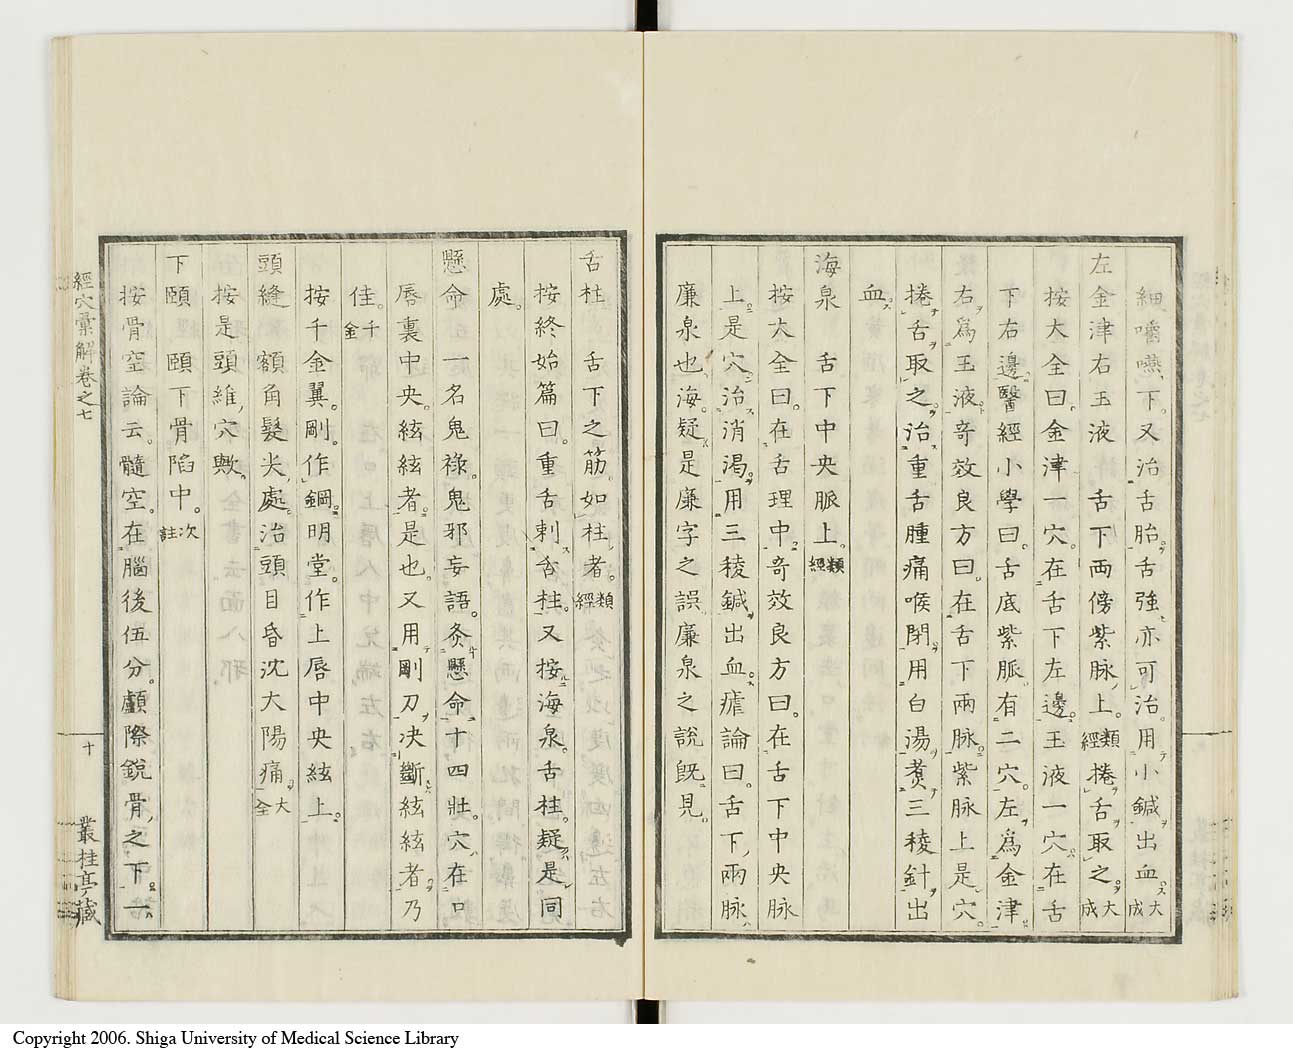 細嚼嚥下又治舌胎舌強亦可治用小鍼出血大成
左金津右玉液　舌下兩傍紫脉上類經捲舌取之大成
按大全曰金津一穴在舌下左邊玉液一穴在舌
下右邊醫經小學曰舌底紫脈有二穴左爲金津
右爲玉液奇效良方曰在舌下兩脉紫脉上是穴
捲舌取之治重舌腫痛喉閉用白湯煑三稜針出
血
海泉　舌下中央脈上類經
按大全曰在舌理中奇效良方曰在舌下中央脉
上是穴治消渴用三稜鍼出血瘧論曰舌下兩脉
廉泉也海疑是廉字之誤廉泉之說旣見
舌柱　舌下之筋如柱者類經
按終始篇曰重舌刺舌柱又按海泉舌柱疑是同
處
懸命　一名鬼祿鬼邪妄語灸懸命十四壯穴在口
唇裏中央絃者是也又用剛刀决斷絃絃者乃
佳千金
按千金翼剛作鋼明堂作上唇中央絃上
頭縫　額角髮尖處治頭目昏沈大陽痛大全
按是頭維穴歟
下頤　頤下骨陷中次註
按骨空論云髓空在腦後伍分顱際銳骨之下一
經穴彙解卷之七
十
叢桂亭藏
Copyright 2006. Shiga University of Medical Science Library